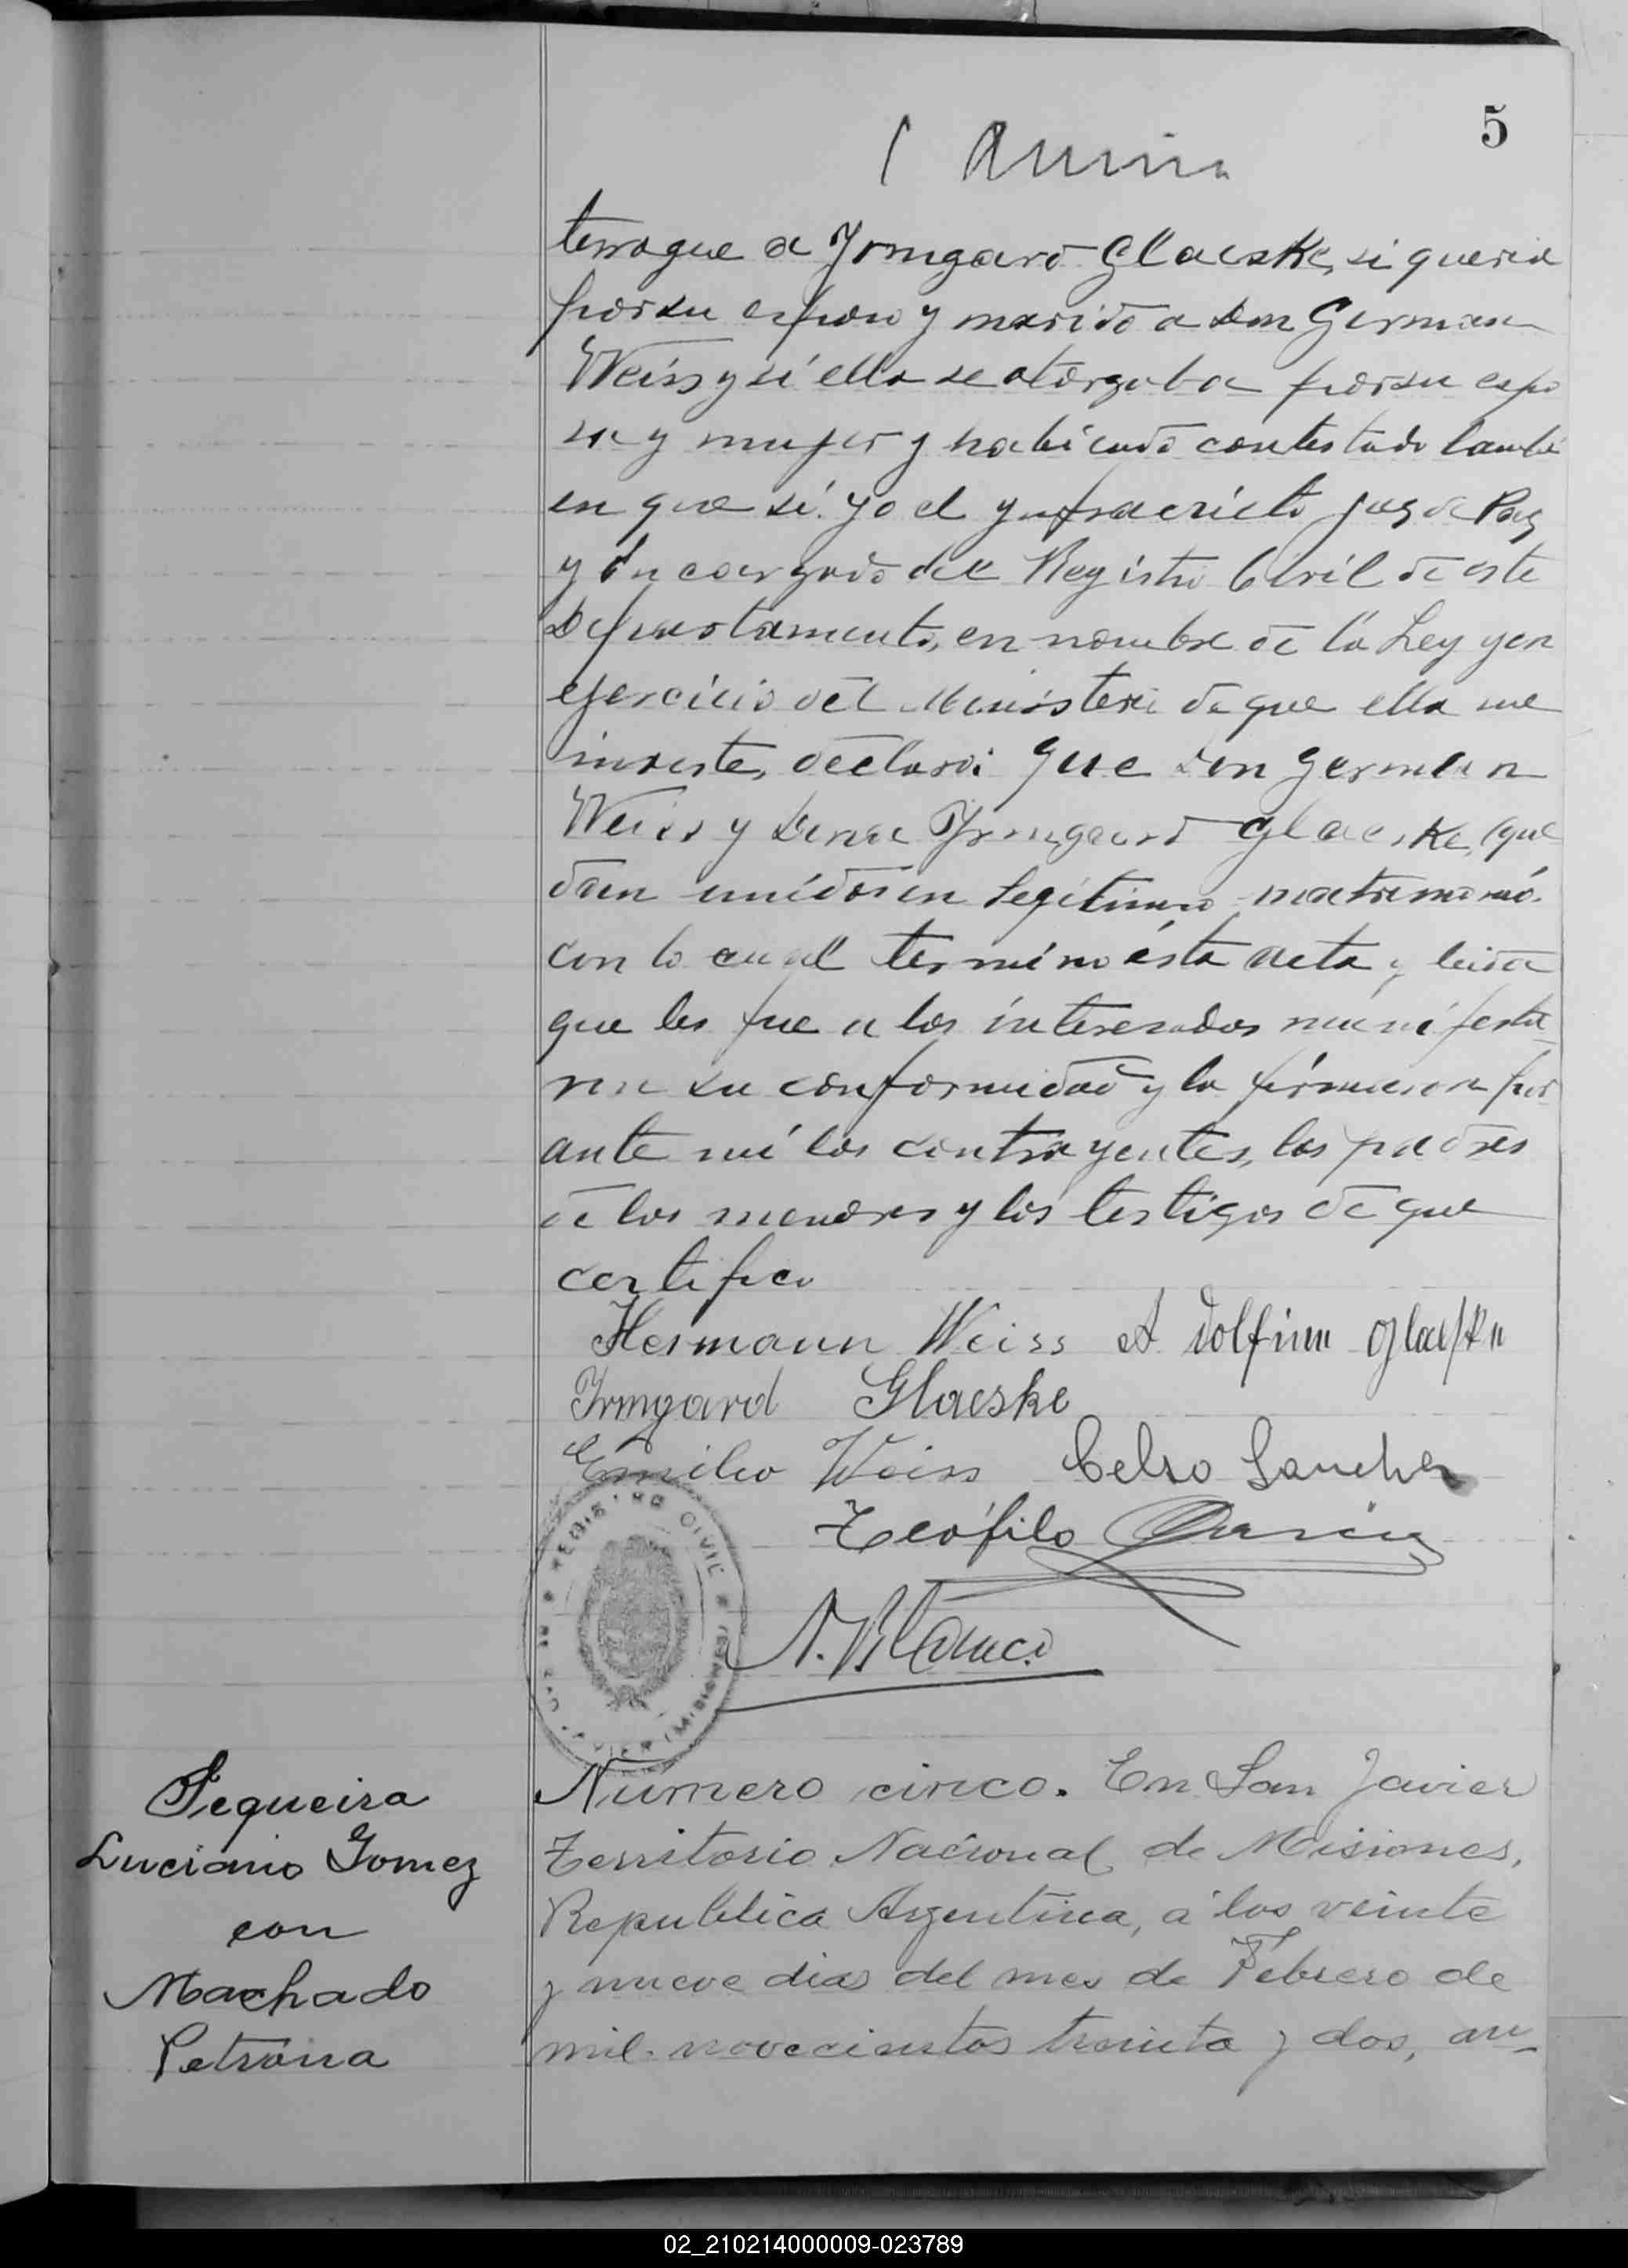 5
terrogue a Yrmgard Glaeske, si queria
por su esposo y marido a Don German
Weiss y si ella se otorgaba por su espo
sa y mujer y habiendo contestado tambi
en que si. Yo el ynfrascricto Juez de Paz
y Encargado del Registro Civil de este
Departamento, en nombre de la Ley y en
ejercicio del Ministerio de que ella me
inviste, declaro: que Don German
Weiss y Dona Yrmgard Glaeske, que
dan unidos en legitimo matrimonio.
con lo cual termino ésta acta y leida
que les fue a los interesados manifesta
ron su conformidad y la firmaron por
ante mi los contrayentes, los padres
de los menores y los testigos de que
certifico
Hermann Weiss Adolfine Glaeske
Irmgard Glaeske
Emilio Weiss Celso Sanchez
Teófilo Garcia
REGISTRO CIVIL
SAN JAVIER (MISIONES)
Sequeira
Luciano Gomez
con
Machado
Petrona
Numero cinco. En San Javier
Territorio Nacional de Misiones,
Republica Argentina, á los veinte
y nueve dias del mes de Febrero de
mil novecientos treinta y dos, an-
02_210214000009-023789